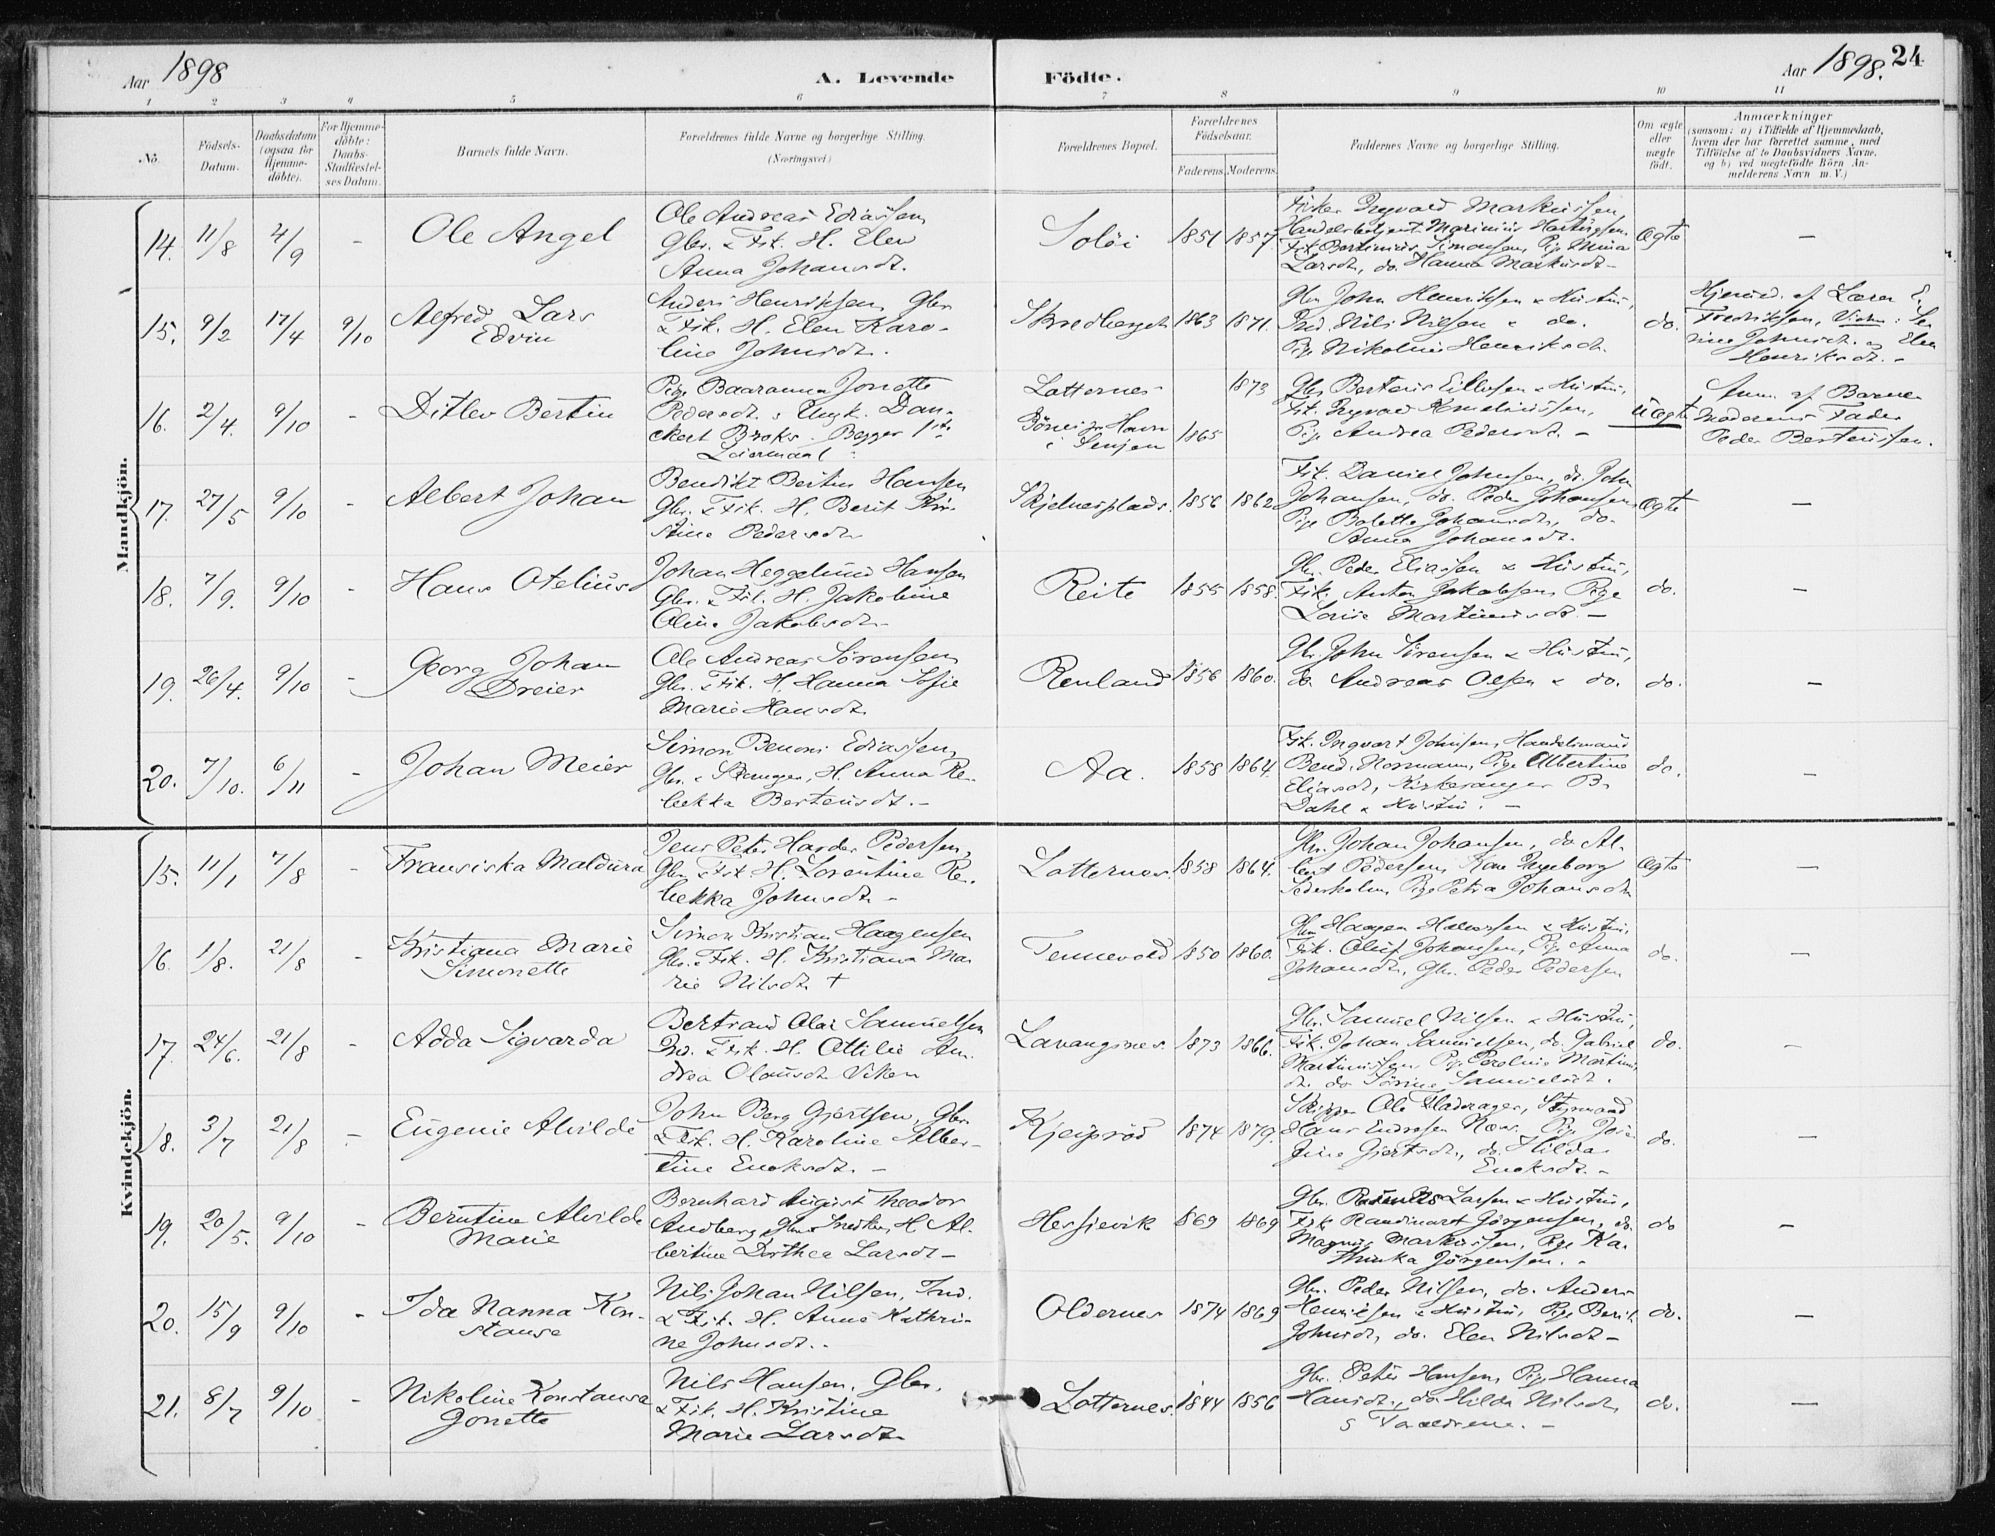 Aar 1898
A. Levende Födte.
Aar 1898. 24
1 2 3 4 5 6 7 8 9 10 11
No.
Födsels-
Datum.
Daabsdatum
(ogsaa for
Hjemme-
döbte).
For Hjemme-
döbte:
Daabs-
Stadfæstel-
ses Datum.
Barnets fulde Navn.
Forældrenes fulde Navne og borgerlige Stilling.
(Næringsvei)
Forældrenes Bopæl.
Forældrenes
Födselsaar.
Faderens. Moderens.
Faddernes Navne og borgerlige Stilling.
Om ægte
eller
uægte
födt.
Anmærkninger
(saasom: a) i Tilfælde af Hjemmedaab,
hvem der har forrettet samme, med
Tilföielse af to Daabsvidners Navne,
og b) ved uægtefödte Börn An-
melderens Navn m. V.)
Mandkjön.
14. 11/8 4/9 - Ole Angel
Ole Andreas Ediassen,
Gbr. & Fsk. H. Elen
Anna Johansdt.
Solöi 1851 1857.
Fisker Ingvald Markussen,
Handelsbetjent Marinius Hartvigsen
Fsk. Bertinius Simonsen, Pige Mina
Larsdt., do. Hanna Markusdt -
Ægte —
15. 9/2 17/4 9/10 Alfred Lars
Edvin
Anders Henriksen, Gbr.
& Fsk. H. Elen Karo-
line Johnsdt.
Skredberget 1863 1871.
Gbr John Henriksen & Hustru,
Ind. Nils Nilsen & do.
Pige Nikoline Henriksdt.
do.
Hjemmed. af Lærer E.
Fredriksen, Vidner: Se-
rine Johnsdt. og Elen
Henriksdt. -
16. 2/4. 9/10 - Ditlev Bertin
Pige Baaranna Jonette
Pedersdt. & Ungk. Dan-
ckert Broks. Begges 1ste
Leiermaal.
Lotternes
i Senjen
1865 1873
Gbr Berteus Ellefsen & Hustru,
Fsk. Ingvald Kornelinssen,
Pige Andrea Pedersdt. -
Uægte
Anm. af Barne-
moderens Fader
Peder Berteussen.
17. 27/5 9/10 - Albert Johan
Benedikt Bertius Hansen
Gbr. & Fsk. H. Berit Kir-
stine Pedersdt.
Skjelnesplads. 1856 1862
Fsk. Daniel Johnsen, do. John
Johansen, do. Peder Johansen
Pige Bolette Johansdt., do.
Anna Johansdt.
Ægte —
18. 7/9. 9/10 - Hans Otelius
Johan Heggelund Hansen
Gbr. & Fsk. H. Jakobine
Oline Jakobsdt.
Reite 1855 1858.
Gbr. Peder Eliassen & Hustru,
Fsk. Anton Jakobsen, Pige
Lovise Martinusdt. -
do. —
19. 26/4. 9/10 - Georg Johan
Dreier
Ole Andreas Sörensen,
Gbr. & Fsk. H. Hanna Sofie
Marie Hansdt.
Renland 1856 1860.
Gbr. John Sörensen & Hustru,
do. Andreas Olsen & do.
do. —
20. 7/10. 6/11 - Johan Meier
Simon Benoni Ediassen,
Gbr. & H. Anna Re-
bekka Berteusdt. -
Aa. 1858 1864
Fsk. Ingvart Johnsen, Handelsmand
Bend. Normann, Pige Albertine
Eliasdt., Kirkesanger B.
Dahl & Hustru. -
do. —
Kvindekjön.
15. 11/1 7/8 - Fransiska Maldura
Jens Peter Harder Pedersen,
Gbr & Fsk. H. Lorentine Re-
bekka Johnsdt. -
Lotternes. 1858 1864.
Gbr. Johan Johansen, do. Al-
bert Pedersen, Kone Ingeborg
Sederholm, Pige Petra Johansdt
Ægte —
16. 1/8. 21/8 - Kristiana Marie
Simonette
Simon Kristian Haagensen
Gbr. & Fsk. H. Kristiana Ma-
rie Nilsdt. +
Tennevold 1850 1860.
Gbr Haagen Halvorsen & Hustru,
Fsk. Oluf Johansen, Pige Anna
Johansdt., Gbr. Peder Pedersen
do. —
17. 24/6. 21/8 - Adda Sigvarda
Bertrand Olai Samuelsen
Ind. & Fsk. H. Ottilie An-
drea Olausdt. Viken
Lavangsnes. 1873 1866.
Gbr. Samuel Nilsen & Hustru,
Fsk. Johan Samuelsen, do. Gabriel
Martinussen, Pige Martinus-
dt. do Sörine Samuelsdt.
do. —
18. 3/7 21/8 - Eugenie Alvilde
John Berg Gjertsen, Gbr
& Fsk. H. Karoline Alber-
tine Enoksdt. -
Kjeipröd 1874 1879.
Skipper Ole Fladrager, Styrmand
Hans Pige Jose-
fine Gjertsdt., do. Hilda
Enoksdt. -
do. —
19. 20/5. 9/10 - Berntine Alvilde
Marie
Bernhard August Theodor
Andberg, Gbr. & Snedker, H. Al-
bertine Dorthea Larsdt -
Hessjevik 1869 1869
Gbr. Larsen & Hustru,
Fsk Randinart Görgensen, do.
Magnus Markussen, Pige Ka-
thinka Jörgensen. -
do —
20. 15/9 9/10 - Ida Nanna Kon-
stanse
Nils Johan Nilsen, Ind.
& Fsk. H. Anne Kathri-
ne Johnsdt. -
Oldernes 1874 1869
Gbr. Peder Nilsen, do. Anders
Henriksen & Hustru, Pige Berit
Johnsdt., do. Elen Nilsdt -
do. —
21. 8/7 9/10 - Nikoline Konstansa
Jonette
Nils Hansen, Gbr.
& Fsk. H. Kristine
Marie Larsdt.
Lotternes. 1844 1856
Gbr. Peter Hansen, Pige Hanna
Hansdt., do. Hilda Nilsdt.
& Forældrene. -
do. —